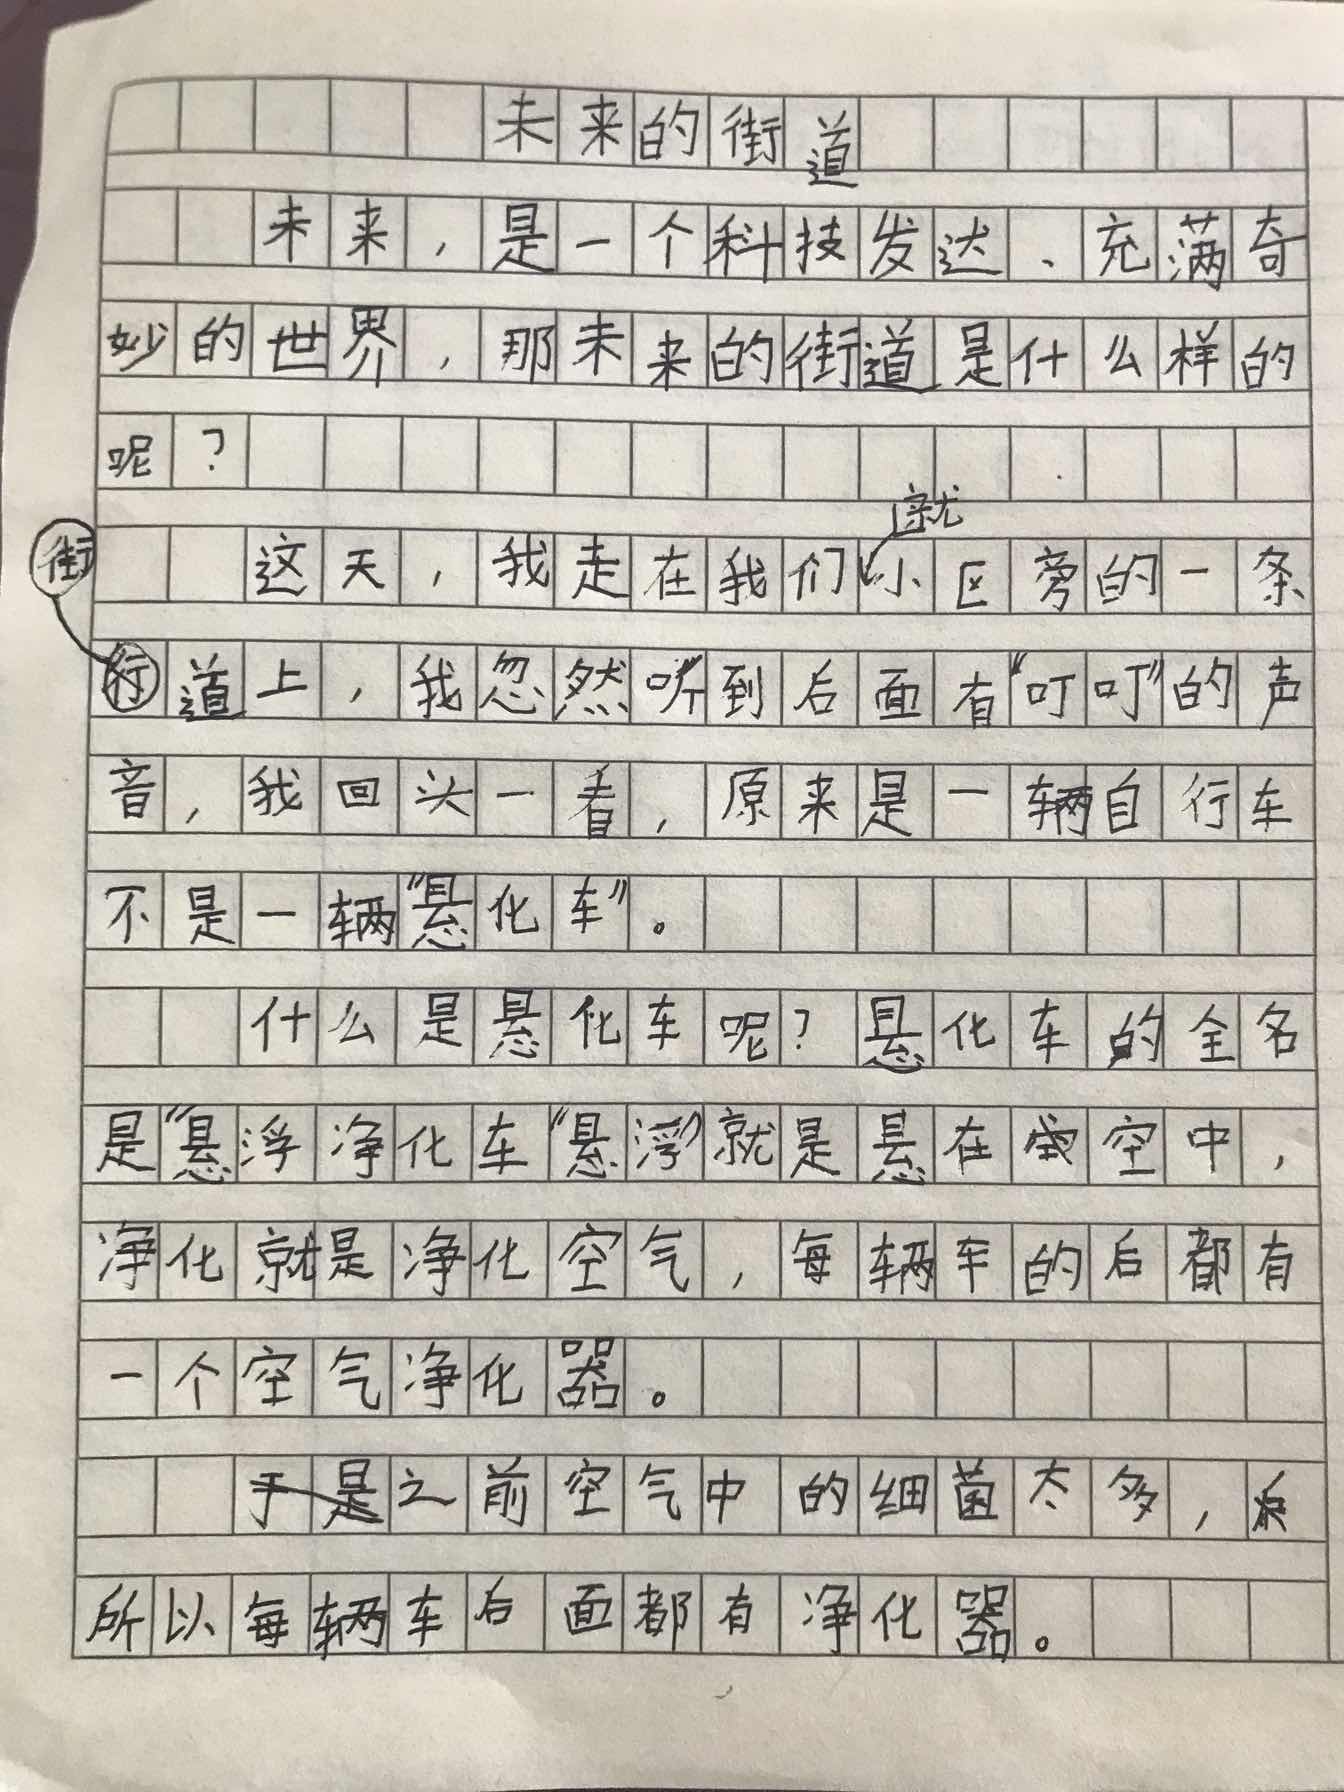 未来的街道
未来，是一个科技发达、充满奇
妙的世界，那未来的街道是什么样的
呢？
就
这天，我走在我们小区旁的一条
街
行道上，我忽然听到后面有“叮叮”的声
音，我回头一看，原来是一辆自行车
不是一辆“悬化车”。
什么是悬化车呢？悬化车的全名
是“悬浮净化车“悬浮”就是悬在空中，
净化就是净化空气，每辆车的后都有
一个空气净化器。
于是之前空气中的细菌太多，
所以每辆车后面都有净化器。